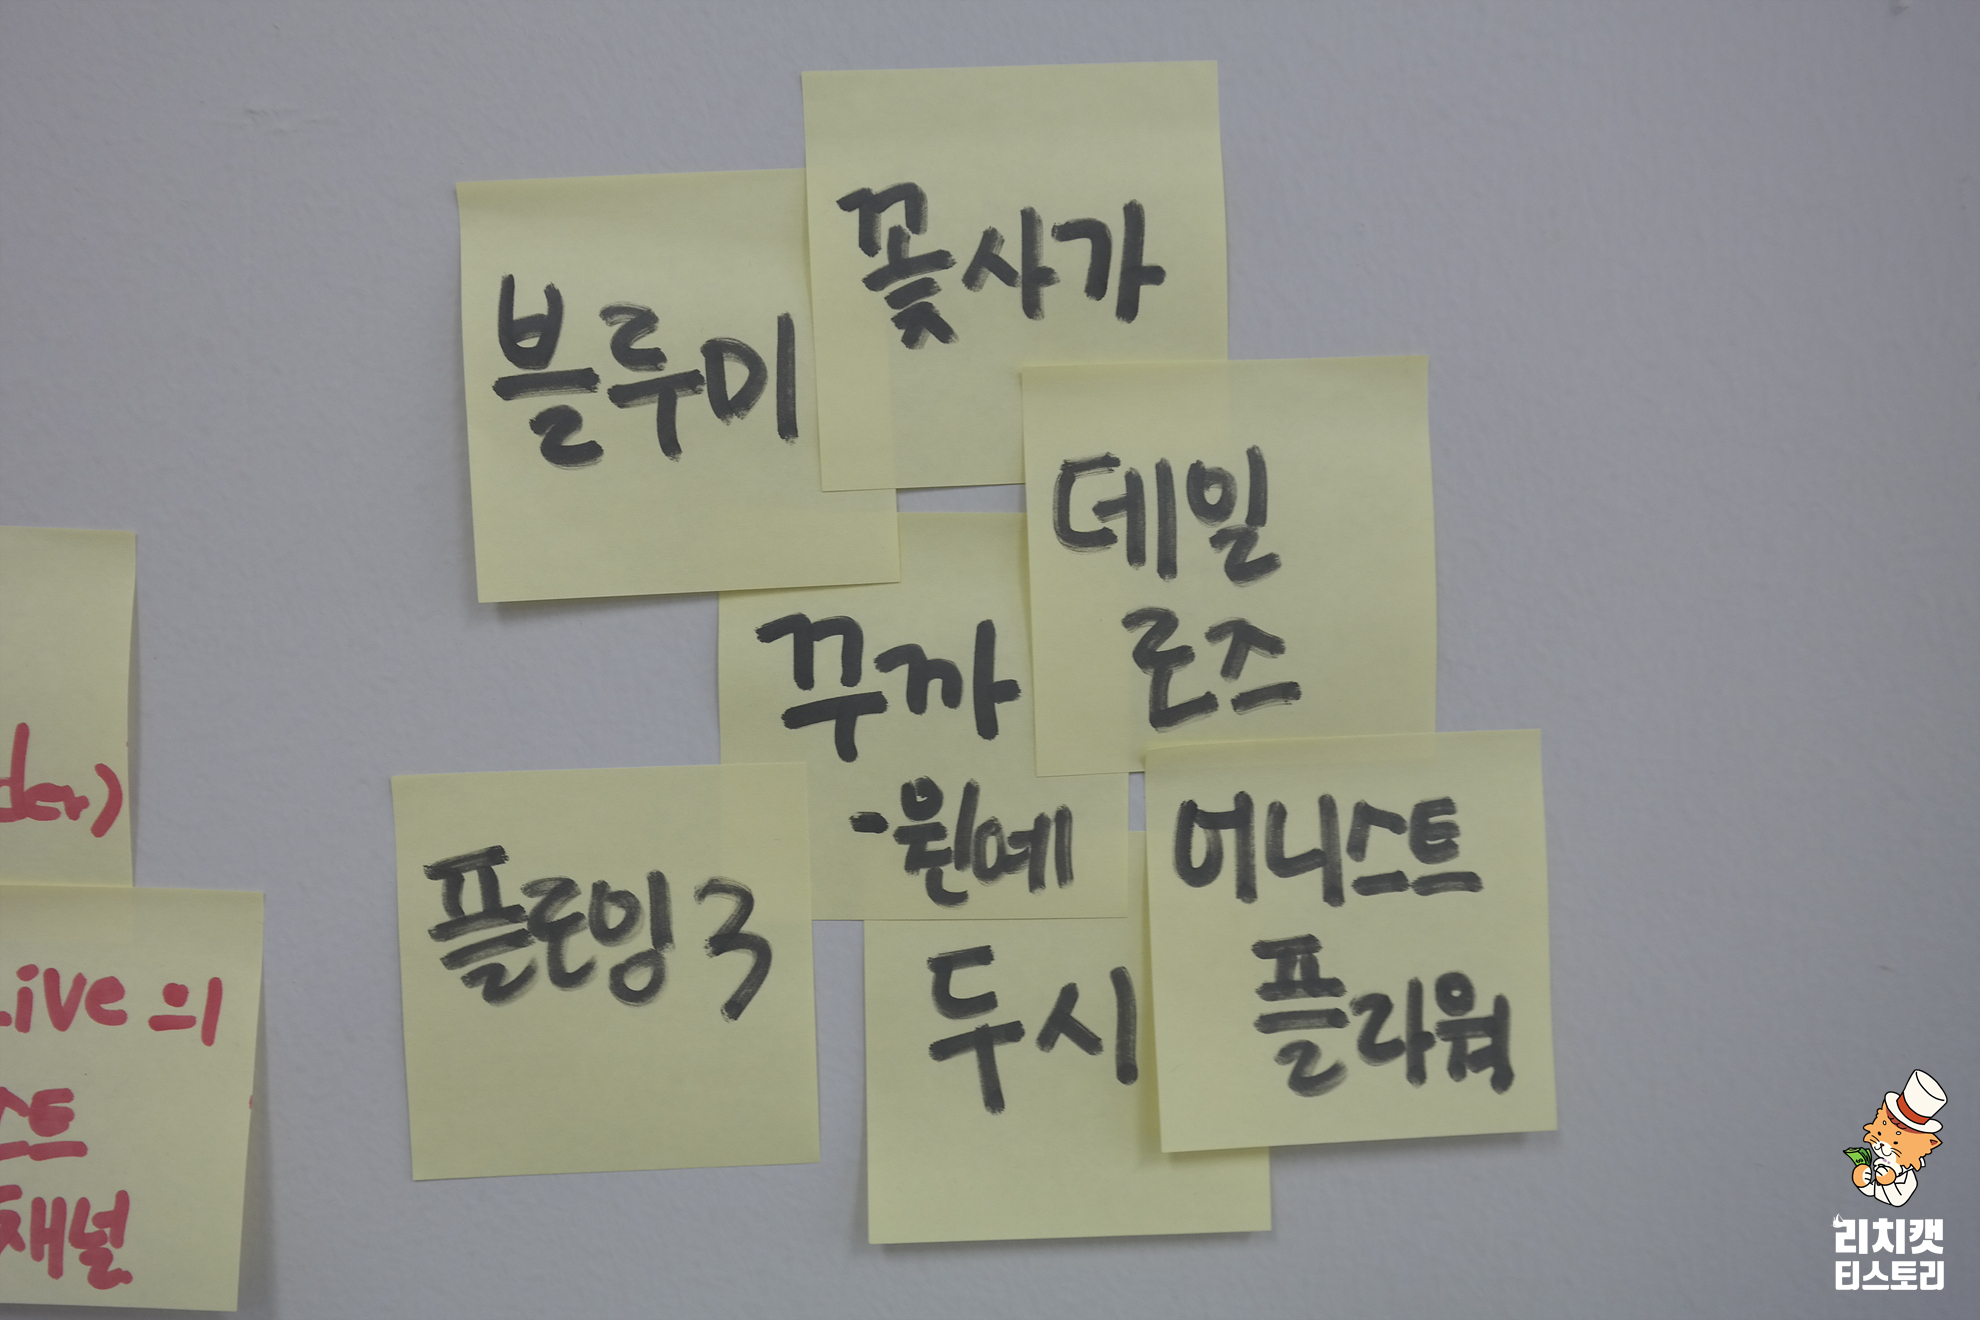 꽃사가
블루미
데일
로즈
꾸까
·원예
어니스트
플라워
플로잉 3
두시
der)
Live 의
스트
채널
리치캣
티스토리